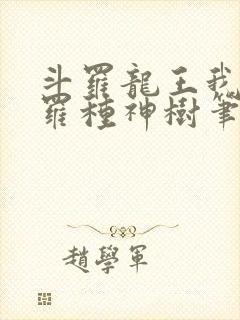 斗羅龍王我
羅種神樹筆
趙學軍